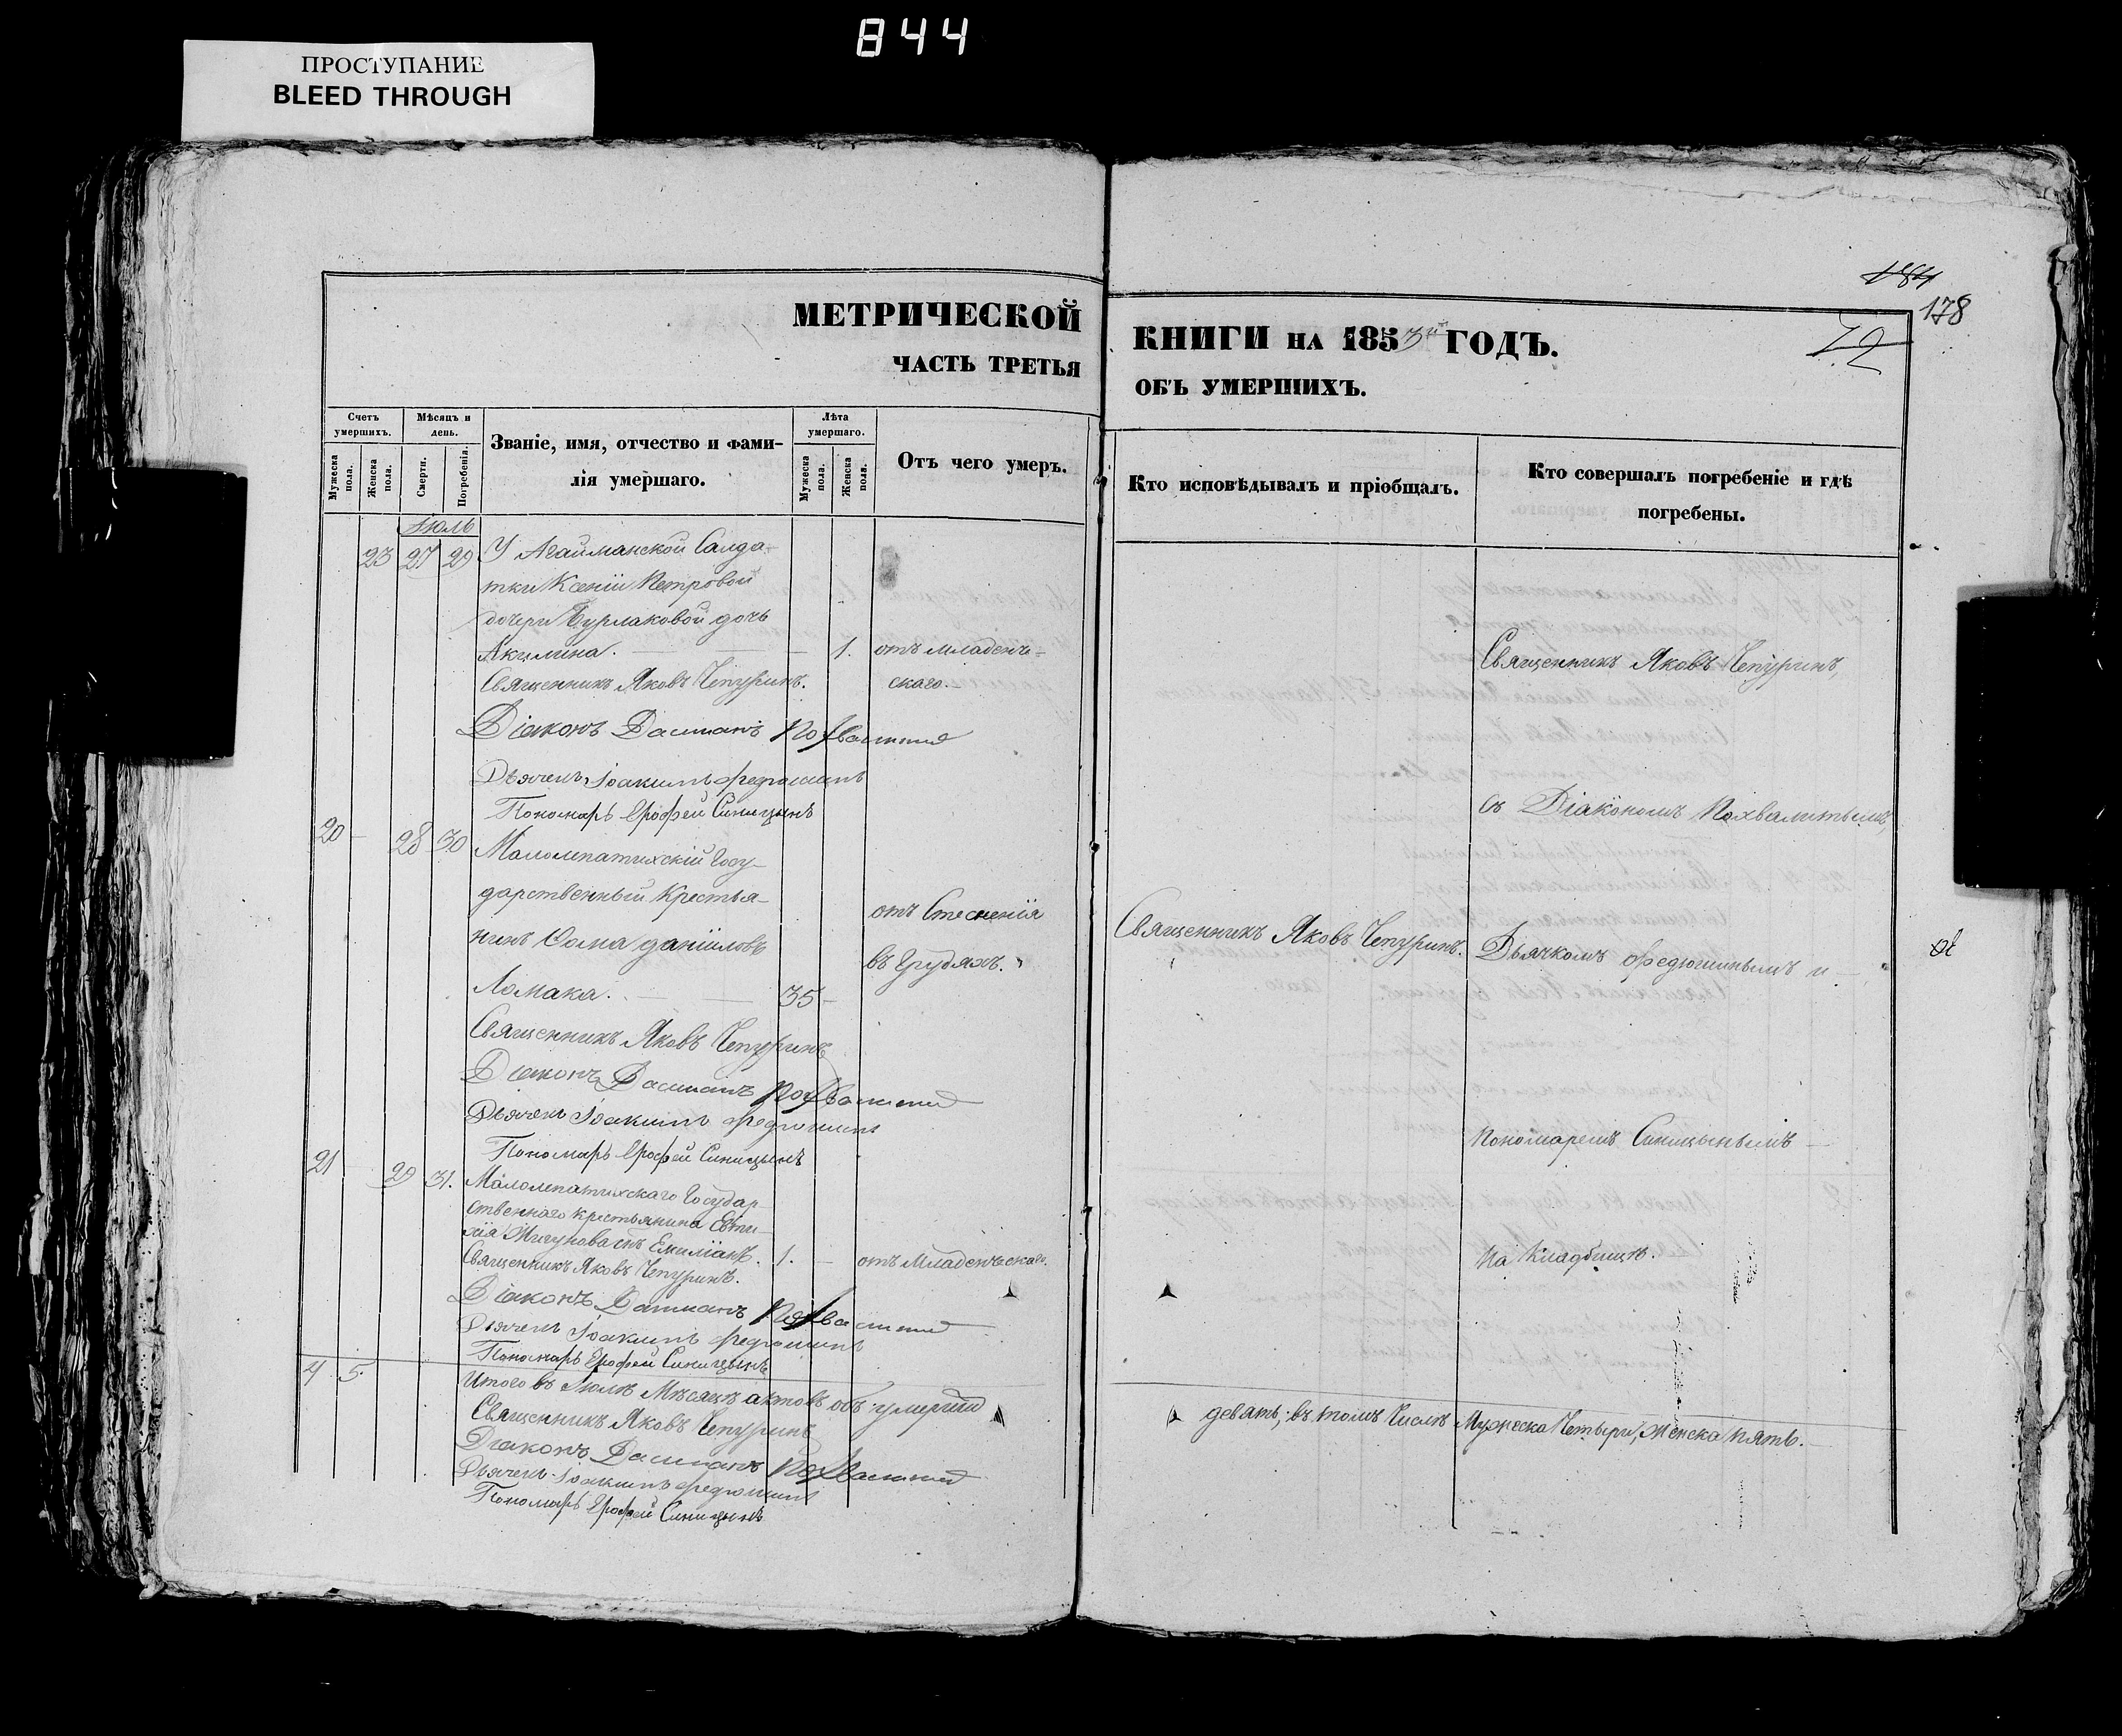 844
ПРОСТУПАНИЕ
BLEED THROUGH
МЕТРИЧЕСКОЙ
ЧАСТЬ ТРЕТЬЯ
Счетъ умершихъ.
Мужеска пола.
Женска пола.
Мѣсяцъ и день.
Смерти.
Погребенія.
Званіе, имя, отчество и фами-
лія умершаго.
Лѣта умершаго.
Мужеска пола.
Женска пола.
Отъ чего умеръ.
Іюль
23 27 29 У Агайманской Салда-
тки Ксеніи Петровой
дочери Бурлаковой дочь
Акилина. 1. отъ младенче-
Священникъ Яковъ Чепуринъ. скаго.
Діаконъ Даміанъ Похвалитый
Дьячекъ Іоакимъ Федюшинъ
Пономарь Ерофей Синицынъ
20 28 30 Малолепатихскій Госу-
дарственный Крестья-
нинъ Ѳома Даніиловъ
Ломака. 35
отъ Стесненія
въ Грудяхъ.
Священникъ Яковъ Чепуринъ
Діаконъ Даміанъ Похвалитый
Дьячекъ Іоакимъ Федюшинъ
Пономарь Ерофей Синицынъ
21 29 31. Малолепатихскаго Государ
ственнаго крестьянина Евти-
хія Жигунова снъ Емиліанъ. 1. отъ Младенческаго.
Священникъ Яковъ Чепуринъ.
Діаконъ Даміанъ Похвалитый
Дьячекъ Іоакимъ Федюшинъ
Пономарь Ерофей Синицынъ
4 5. Итого въ Іюлѣ Мѣсяцѣ актовъ объ умерши
Священникъ Яковъ Чепуринъ
Діаконъ Даміанъ Похвалитый
Дьячекъ Іоакимъ Федюшинъ
Пономарь Ерофей Синицынъ
178
72
КНИГИ НА 1853й ГОДЪ.
ОБЪ УМЕРШИХЪ.
Кто исповѣдывалъ и пріобщалъ.
Кто совершалъ погребеніе и гдѣ
погребены.
Священникъ Яковъ Чепуринъ,
съ Діакономъ Похвалитымъ,
Священникъ Яковъ Чепуринъ.
Дьячкомъ Федюшинымъ и
Пономаремъ Синицынымъ
на кладбищѣ.
девять, въ томъ Числѣ Мужеска Четыри, Женска пять.